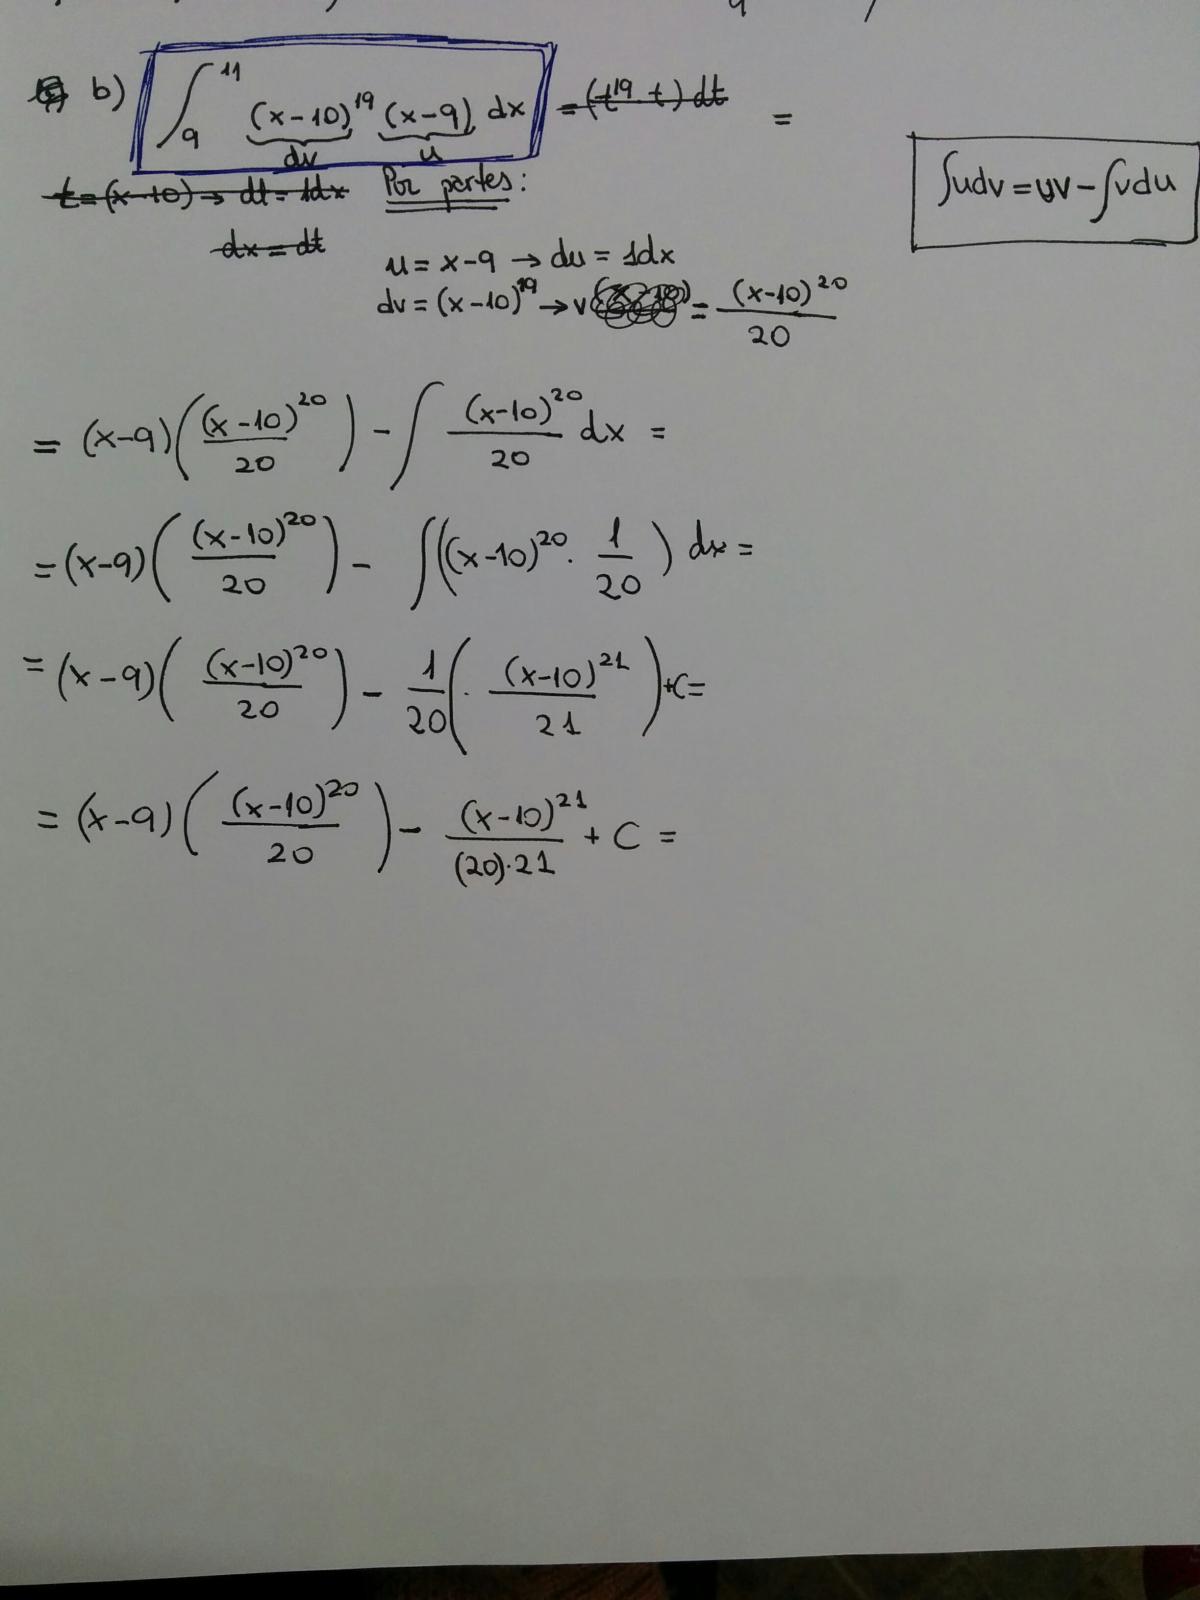 b) ∫₉¹¹ (x-10)¹⁹ (x-9) dx = (t¹⁹·t) dt =
dv u
t=(x-10)→ dt=1dx Por partes:
∫udv = uv - ∫vdu
dx=dt
u = x-9 → du = 1dx
dv = (x-10)¹⁹ → v = (x-10)²⁰/20
= (x-9)((x-10)²⁰/20) - ∫ (x-10)²⁰/20 dx =
= (x-9)((x-10)²⁰/20) - ∫((x-10)²⁰ · 1/20) dx =
= (x-9)((x-10)²⁰/20) - 1/20(· (x-10)²¹/21)+C=
= (x-9)((x-10)²⁰/20) - (x-10)²¹/(20)·21 + C =